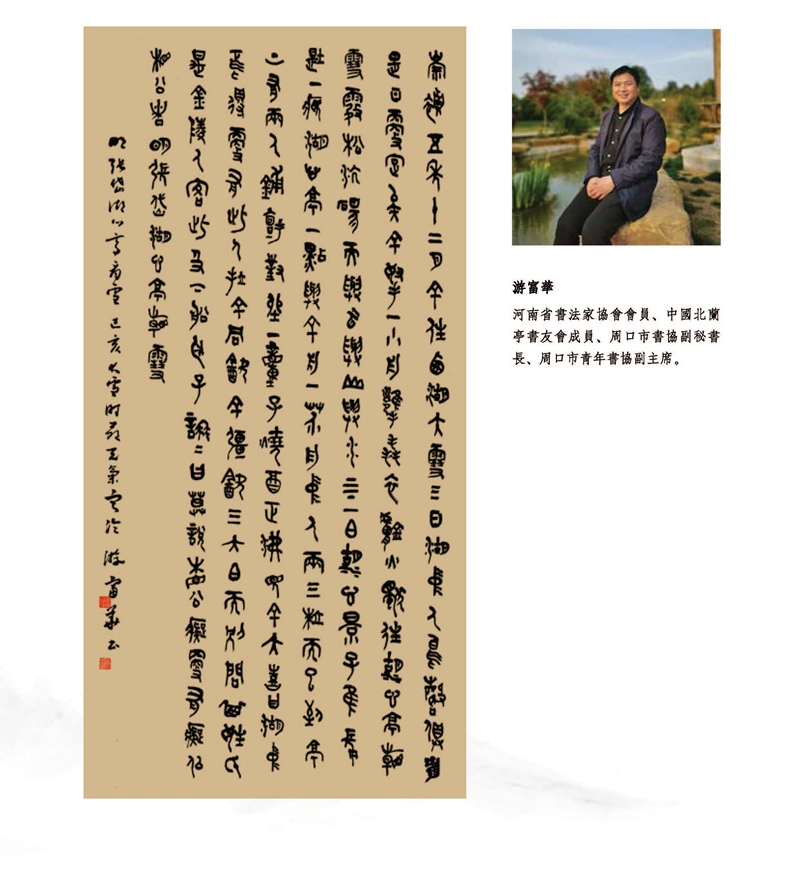 崇禎五年十二月余住西湖大雪三日湖中人鳥聲俱絕
是日更定矣余拏一小舟擁毳衣爐火獨往湖心亭看
雪霧松沆碭天與雲與山與水上下一白湖心影子惟長
堤一痕湖心亭一點與余舟一芥舟中人兩三粒而已到亭
上有兩人鋪氈對坐一童子燒酒正沸見余大喜曰湖中
焉得更有此人拉余同飲余強飲三大白而別問其姓氏
是金陵人客此及下船舟子喃〻曰莫說相公癡更有癡似
相公者明張岱湖心亭看雪
明張岱湖心亭看雪己亥大雪時節天氣寒冷游富華書
游富華
河南省書法家協會會員、中國北蘭
亭書友會成員、周口市書協副秘書
長、周口市青年書協副主席。